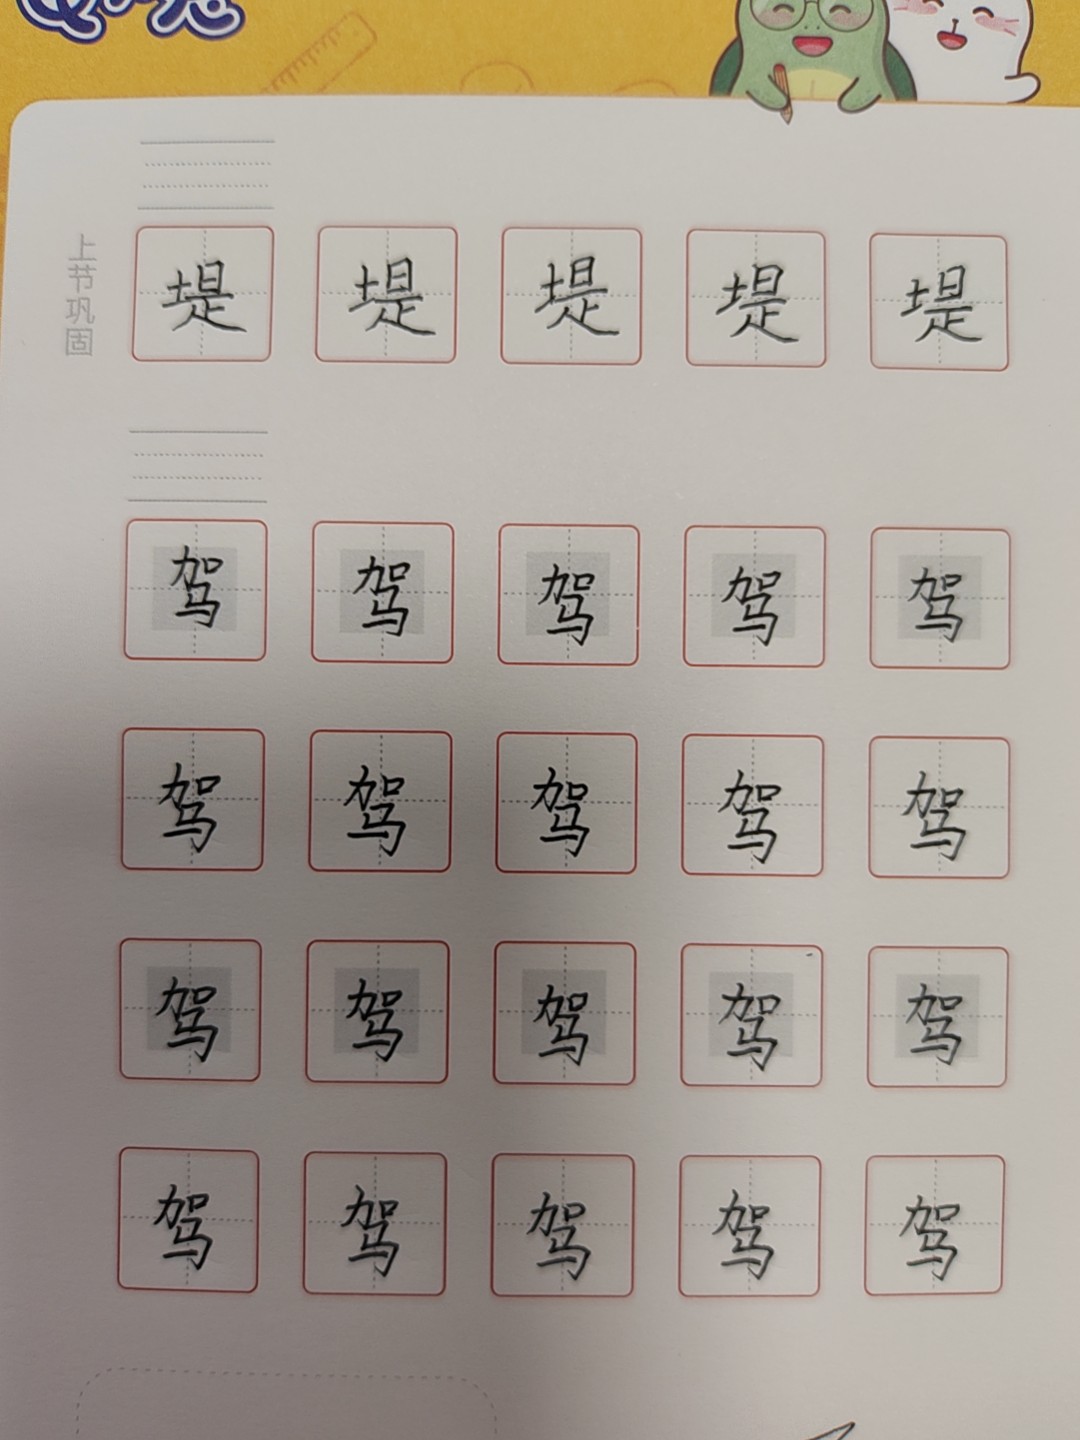 上节巩固
堤 堤 堤 堤 堤
驾 驾 驾 驾 驾
驾 驾 驾 驾 驾
驾 驾 驾 驾 驾
驾 驾 驾 驾 驾